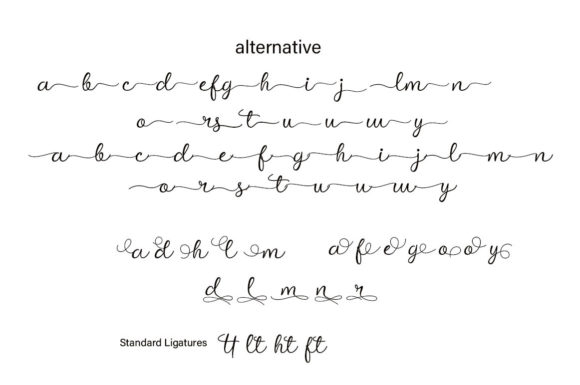 alternative
a b c d efg h i j lm n
o rs t u u w y
a b c d e f g h i j l m n
o r s t u u w y
a d h l m a f e g o o y
d l m n r
Standard Ligatures tt lt ht ft